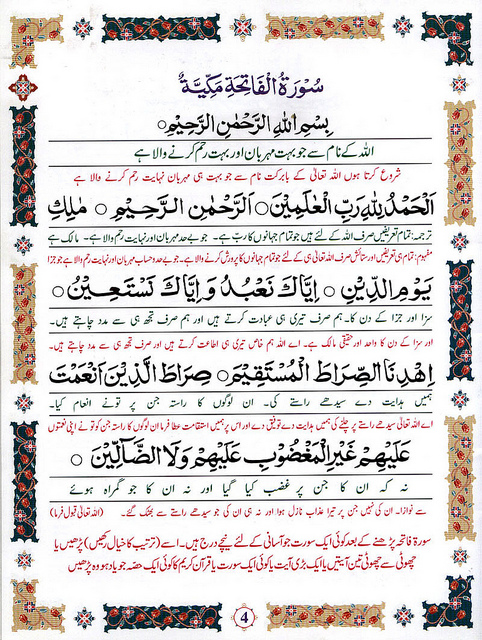 سُوْرَةُ الْفَاتِحَةِ مَكِّيَّةٌ
بِسْمِ اللهِ الرَّحْمٰنِ الرَّحِيْمِ○
اللہ کے نام سے جو بہت مہربان اور بہت رحم کرنے والا ہے
شروع کرتا ہوں اللہ تعالیٰ کے بابرکت نام سے جو بہت ہی مہربان نہایت رحم کرنے والا ہے
اَلْحَمْدُ لِلّٰهِ رَبِّ الْعٰلَمِيْنَ○ اَلرَّحْمٰنِ الرَّحِيْمِ ○ مٰلِكِ
ترجمہ: تمام تعریفیں صرف اللہ کے لئے ہیں جو تمام جہانوں کا رب ہے۔ جو بے حد مہربان اور نہایت رحم والا ہے۔ مالک ہے
مفہوم: تمام ہی تعریفیں اور ستائش صرف اللہ تعالیٰ ہی کے لئے ہے جو تمام جہانوں کا پرورش کرنے والا ہے۔ جو بے حد و حساب مہربان اور نہایت رحم والا ہے جو جزا
يَوْمِ الدِّيْنِ ○ اِيَّاكَ نَعْبُدُ وَ اِيَّاكَ نَسْتَعِيْنُ○
سزا اور جزا کے دن کا۔ ہم صرف تیری ہی عبادت کرتے ہیں اور ہم صرف تجھ ہی سے مدد چاہتے ہیں۔
اور سزا کے دن کا واحد اور حقیقی مالک ہے۔ اے اللہ ہم خاص تیری ہی اطاعت کرتے ہیں اور صرف تجھ ہی سے مدد چاہتے ہیں۔
اِهْدِنَا الصِّرَاطَ الْمُسْتَقِيْمَ○ صِرَاطَ الَّذِيْنَ اَنْعَمْتَ
ہمیں ہدایت دے سیدھے راستے کی۔ ان لوگوں کا راستہ جن پر تونے انعام کیا۔
اے اللہ تعالیٰ سیدھے راستے پر چلنے کی ہمیں ہدایت دے توفیق دے اور اس پر ہمیں استقامت عطا فرما ان لوگوں کا راستہ جن کو تونے اپنی نعمتوں
عَلَيْهِمْ غَيْرِ الْمَغْضُوْبِ عَلَيْهِمْ وَلَا الضَّآلِّيْنَ ○
نہ کہ ان کا جن پر غضب کیا گیا اور نہ ان کا جو گمراہ ہوئے
سے نوازا۔ ان کی نہیں جن پر تیرا عذاب نازل ہوا اور نہ ہی ان کی جو سیدھے راستے سے بھٹک گئے۔ (اللہ تعالیٰ قبول فرما)
سورۃ فاتحہ پڑھنے کے بعد کوئی ایک سورت جو آسانی کے لئے نیچے درج ہیں۔ اسے (ترتیب کا خیال رکھیں) پڑھیں یا
چھوٹی سے چھوٹی تین آیتیں یا ایک بڑی آیت یا کوئی ایک سورت یا قرآن کریم کا کوئی ایک حصہ جو یاد ہو وہ پڑھیں
4